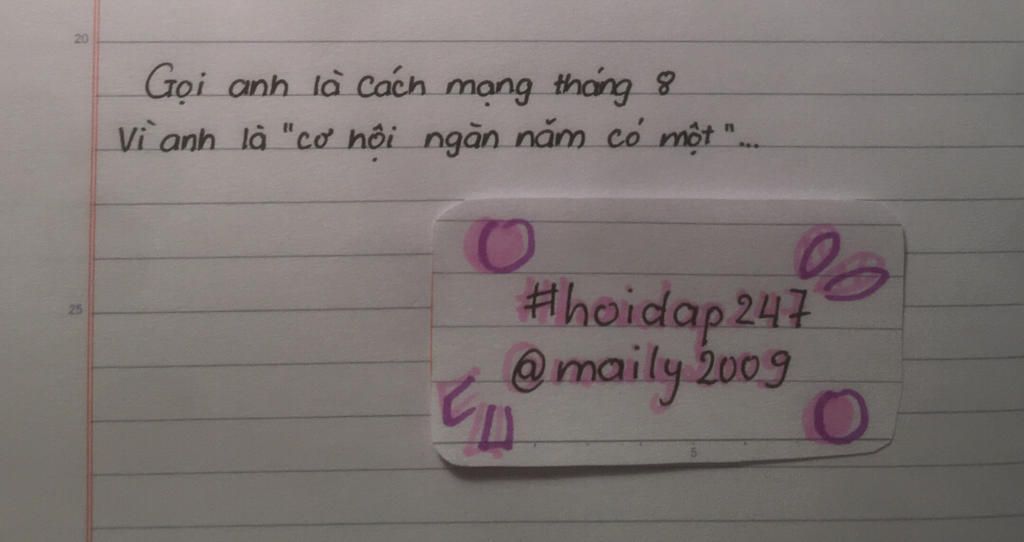 20
Gọi anh là cách mạng tháng 8
Vì anh là "cơ hội ngàn năm có một"...
25
#hoidap247
@maily2009
5